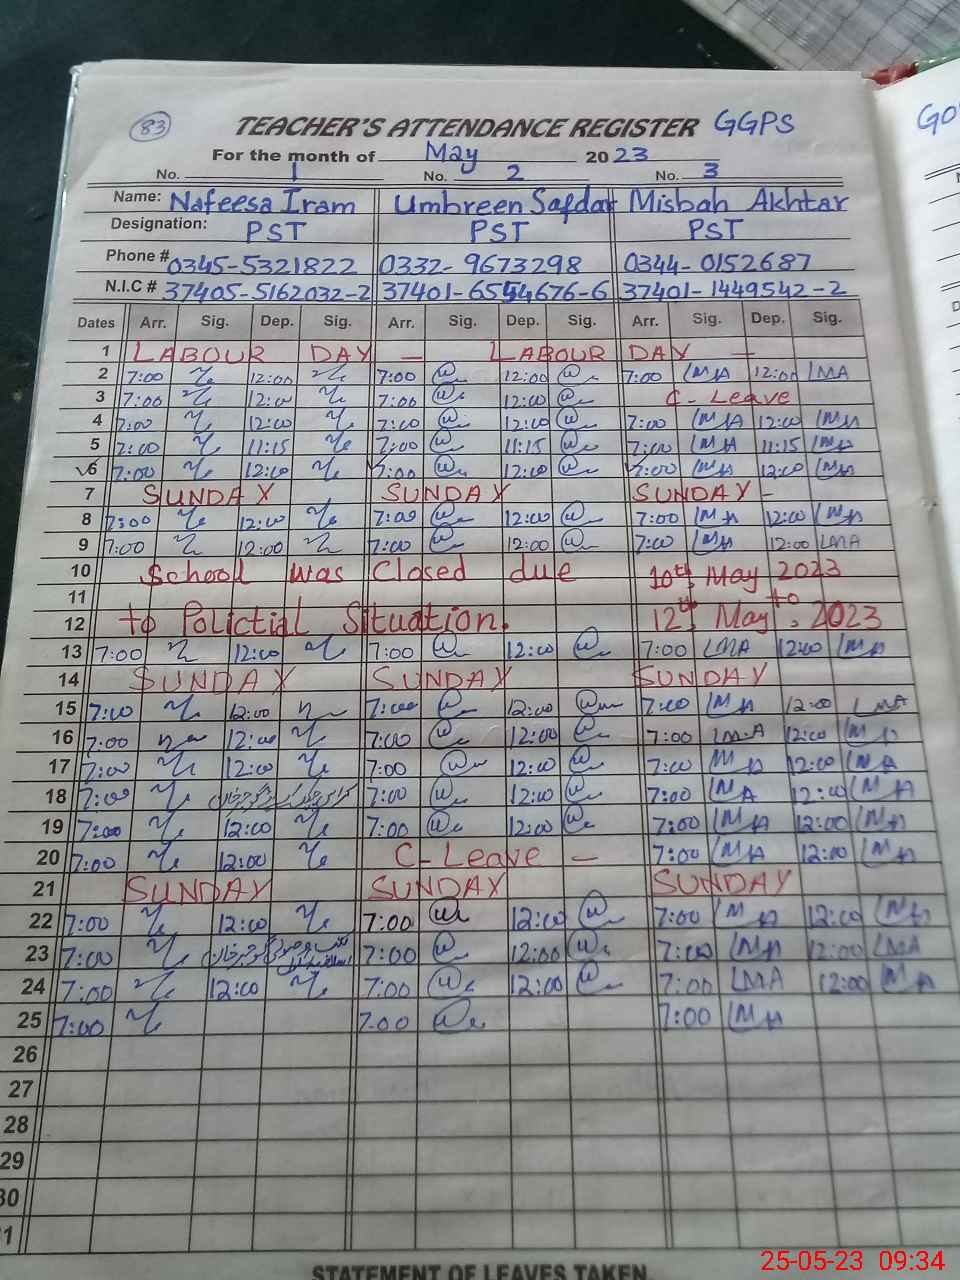 83 TEACHER'S ATTENDANCE REGISTER GGPS
For the month of May 2023
No. 1 No. 2 No. 3
Name: Nafeesa Iram Umbreen Safdar Misbah Akhtar
Designation: PST PST PST
Phone # 0345-5321822 0332-9673298 0344-0152687
N.I.C # 37405-5162032-2 37401-6554676-6 37401-1449542-2
Dates Arr. Sig. Dep. Sig. Arr. Sig. Dep. Sig. Arr. Sig. Dep. Sig.
1 LABOUR DAY — LABOUR DAY —
2 7:00 12:00 7:00 12:00 7:00 MA 12:00 MA
3 7:00 12:00 7:00 12:00 C-Leave
4 7:00 12:00 7:00 12:00 7:00 MA 12:00 MA
5 7:00 11:15 7:00 11:15 7:00 MA 11:15 MA
6 7:00 12:00 7:00 12:00 7:00 MA 12:00 MA
7 SUNDAY SUNDAY SUNDAY -
8 7:00 12:00 7:00 12:00 7:00 MA 12:00 MA
9 7:00 12:00 7:00 12:00 7:00 MA 12:00 MA
10 School was Closed due 10th May 2023
11 to
12 to Polictial Situation. 12th May, 2023
13 7:00 12:00 7:00 12:00 7:00 MA 12:00 MA
14 SUNDAY SUNDAY SUNDAY
15 7:00 12:00 7:00 12:00 7:00 MA 12:00 MA
16 7:00 12:00 7:00 12:00 7:00 MA 12:00 MA
17 7:00 12:00 7:00 12:00 7:00 MA 12:00 MA
18 7:00 گوجرخان 7:00 12:00 7:00 MA 12:00 MA
19 7:00 12:00 7:00 12:00 7:00 MA 12:00 MA
20 7:00 12:00 C-Leave — 7:00 MA 12:00 MA
21 SUNDAY SUNDAY SUNDAY
22 7:00 12:00 7:00 12:00 7:00 MA 12:00 MA
23 7:00 گوجرخان 7:00 12:00 7:00 MA 12:00 MA
24 7:00 12:00 7:00 12:00 7:00 MA 12:00 MA
25 7:00 7:00 7:00 MA
26
27
28
29
30
31
STATEMENT OF LEAVES TAKEN
25-05-23 09:34